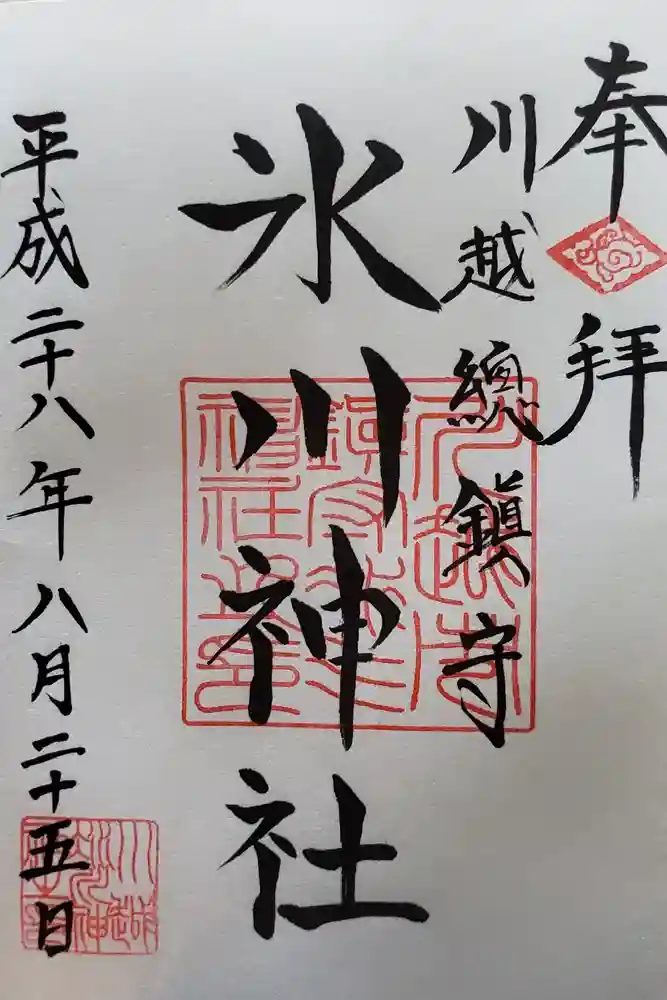 奉拝
川越總鎮守
氷川神社
平成二十八年八月二十五日